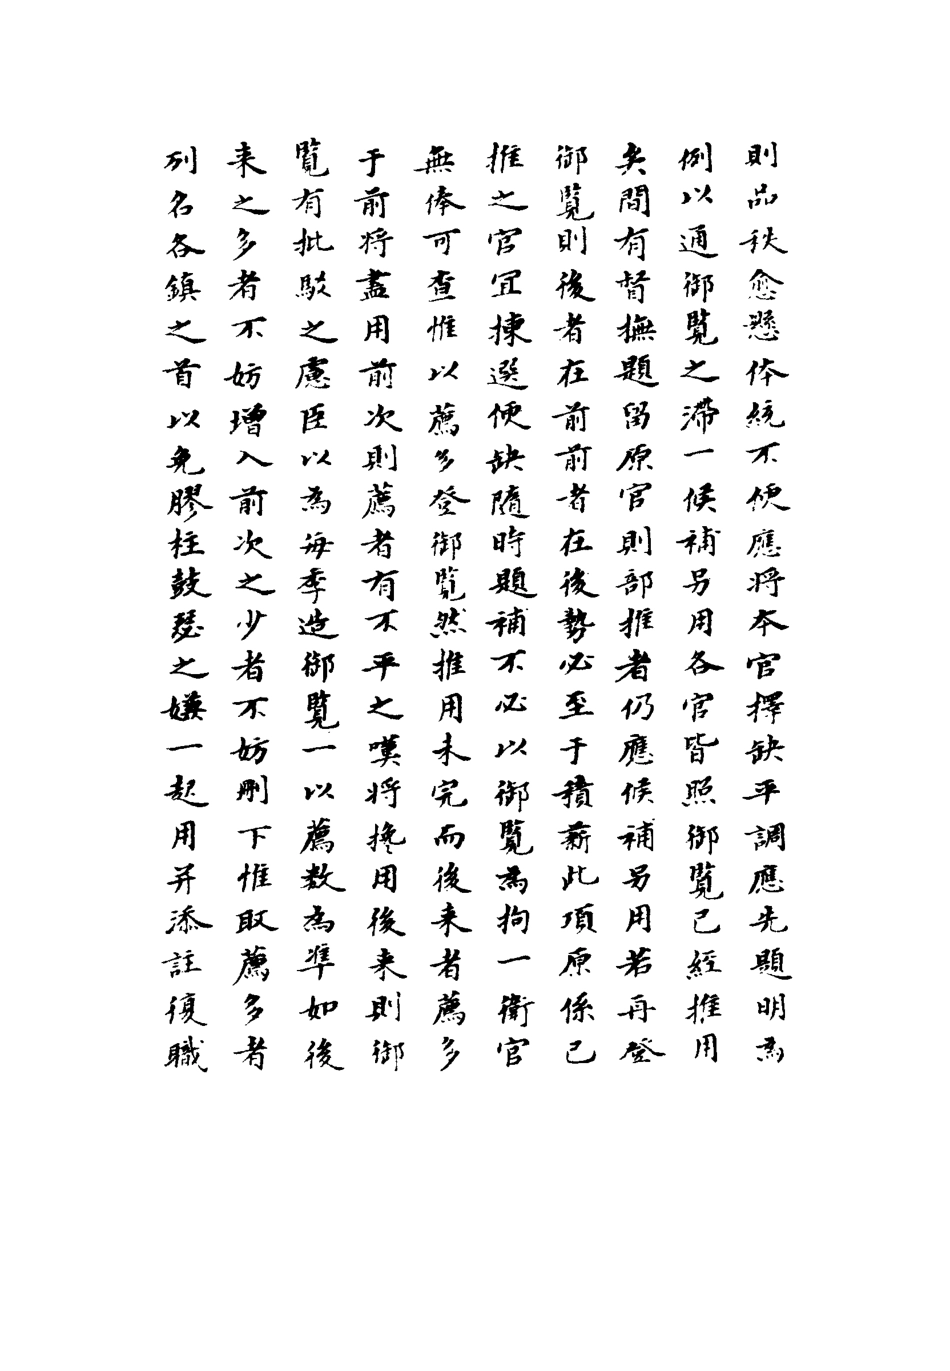 則品秩愈懸体統不便應将本官擇缺平調應先題明為
例以通御覧之滞一候補另用各官皆照御覧已經推用
矣間有督撫題留原官則部推者仍應候補另用若再登
御覧則後者在前前者在後勢必至于積薪此項原係已
推之官宜揀選便缺隨時題補不必以御覧為拘一衛官
無俸可查惟以薦多登御覧然推用未完而後来者薦多
于前将盡用前次則薦者有不平之嘆将搀用後来則御
覧有批駁之慮臣以為每季造御覧一以薦数為準如後
来之多者不妨增入前次之少者不妨刪下惟取薦多者
列名各鎮之首以免膠柱鼓瑟之嫌一起用并添註復職